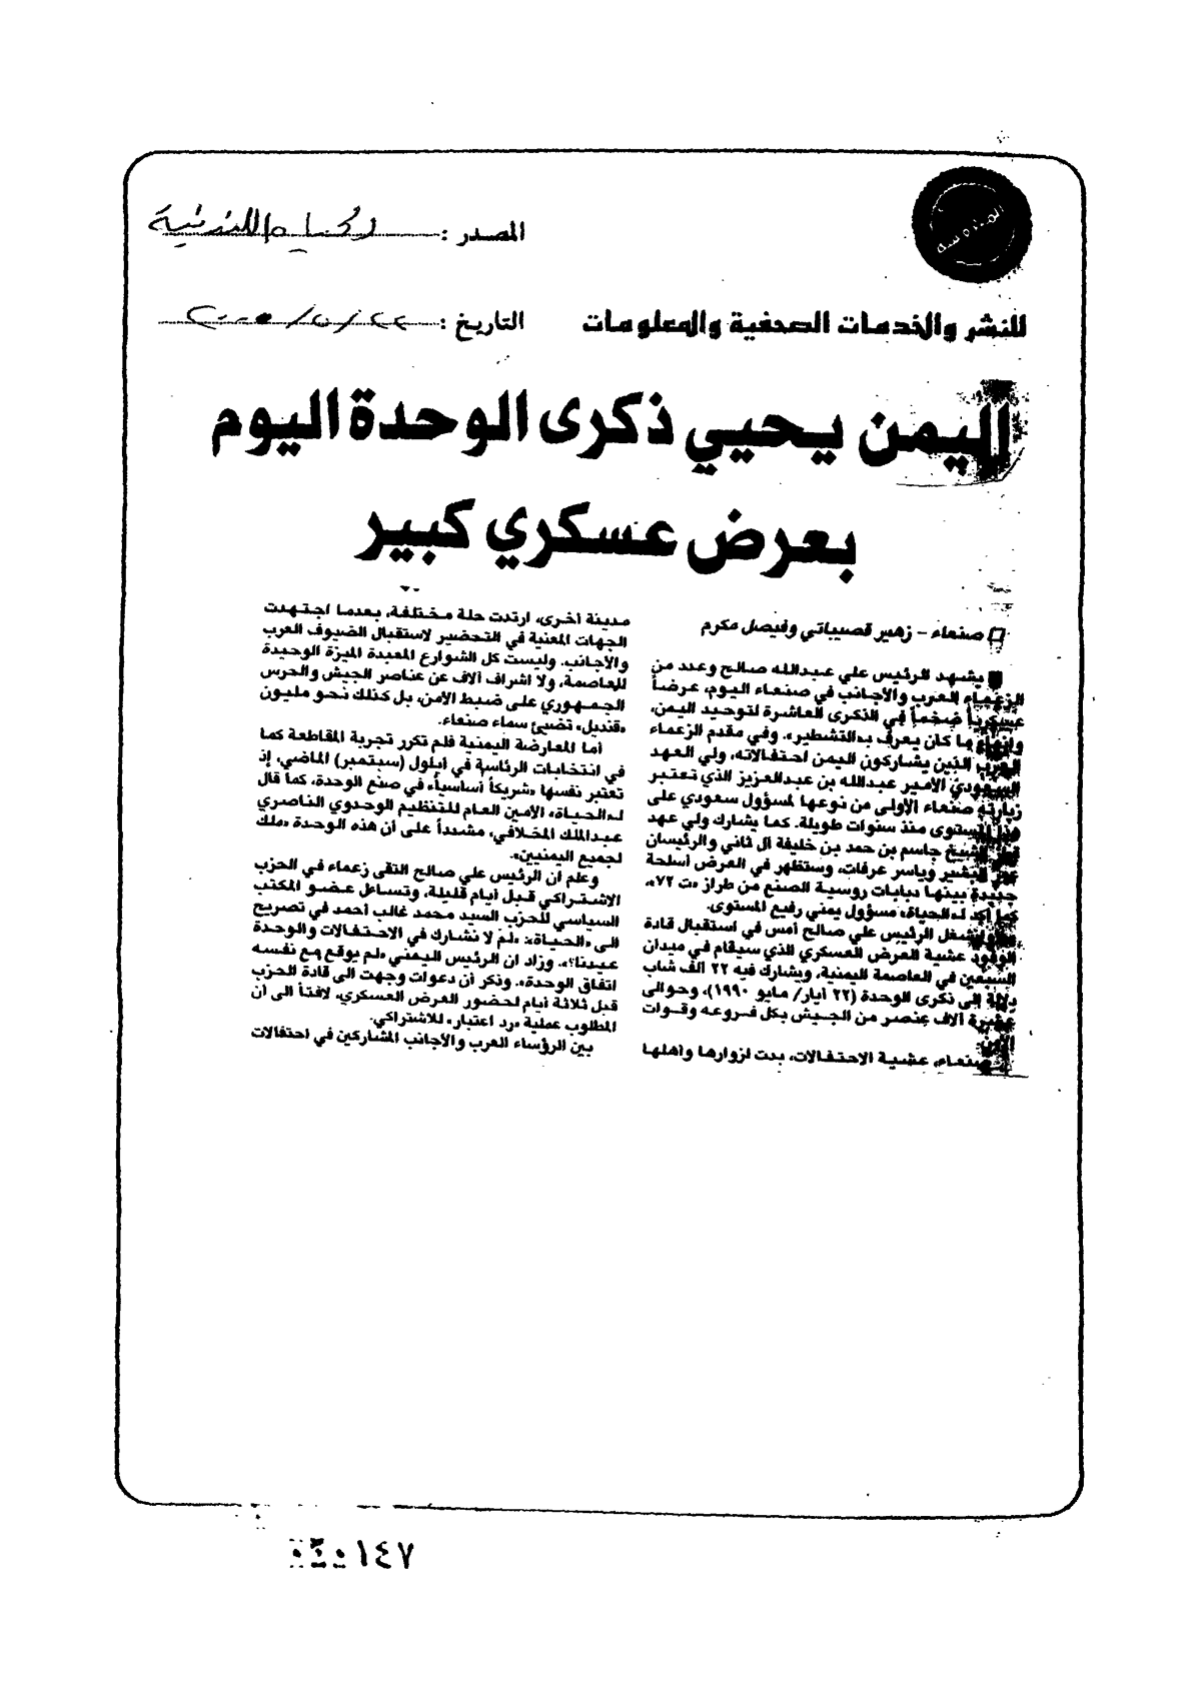 المصدر : الحياة اللندنية
المندوسة
للنشر والخدمات الصحفية والمعلومات
التاريخ : ٢٢ / ٥ / ٢٠٠٠
اليمن يحيي ذكرى الوحدة اليوم
بعرض عسكري كبير
□ صنعاء – زهير قصيباتي وفيصل مكرم
■ يشهد الرئيس علي عبدالله صالح وعدد من
الزعماء العرب والأجانب في صنعاء اليوم، عرضاً
عسكرياً ضخماً في الذكرى العاشرة لتوحيد اليمن،
وإنهاء ما كان يعرف بـ«التشطير». وفي مقدم الزعماء
العرب الذين يشاركون اليمن احتفالاته، ولي العهد
السعودي الأمير عبدالله بن عبدالعزيز الذي تعتبر
زيارته صنعاء الأولى من نوعها لمسؤول سعودي على
هذا المستوى منذ سنوات طويلة. كما يشارك ولي عهد
قطر الشيخ جاسم بن حمد بن خليفة آل ثاني والرئيسان
عمر البشير وياسر عرفات، وستظهر في العرض أسلحة
جديدة بينها دبابات روسية الصنع من طراز «ت ٧٢»،
كما أكد لـ«الحياة» مسؤول يمني رفيع المستوى.
وانشغل الرئيس علي صالح أمس في استقبال قادة
الوفود عشية العرض العسكري الذي سيقام في ميدان
السبعين في العاصمة اليمنية، ويشارك فيه ٢٢ ألف شاب
دلالة إلى ذكرى الوحدة (٢٢ أيار/ مايو ١٩٩٠)، وحوالى
عشرة آلاف عنصر من الجيش بكل فروعه وقوات
الأمن.
صنعاء، عشية الاحتفالات، بدت لزوارها وأهلها
مدينة أخرى، ارتدت حلة مختلفة، بعدما اجتهدت
الجهات المعنية في التحضير لاستقبال الضيوف العرب
والأجانب. وليست كل الشوارع المعبدة الميزة الوحيدة
للعاصمة، ولا اشراف آلاف عن عناصر الجيش والحرس
الجمهوري على ضبط الأمن، بل كذلك نحو مليون
«قنديل» تضيئ سماء صنعاء.
أما المعارضة اليمنية فلم تكرر تجربة المقاطعة كما
في انتخابات الرئاسة في أيلول (سبتمبر) الماضي، إذ
تعتبر نفسها «شريكاً أساسياً» في صنع الوحدة، كما قال
لـ«الحياة» الأمين العام للتنظيم الوحدوي الناصري
عبدالملك المخلافي، مشدداً على أن هذه الوحدة «ملك
لجميع اليمنيين».
وعلم أن الرئيس علي صالح التقى زعماء في الحزب
الاشتراكي قبل أيام قليلة، وتساءل عضو المكتب
السياسي للحزب السيد محمد غالب أحمد في تصريح
الى «الحياة»: «لم لا نشارك في الاحتفالات والوحدة
عيدنا؟». وزاد ان الرئيس اليمني «لم يوقع مع نفسه
اتفاق الوحدة». وذكر أن دعوات وجهت الى قادة الحزب
قبل ثلاثة أيام لحضور العرض العسكري، لافتاً الى أن
المطلوب عملية «رد اعتبار» للاشتراكي.
بين الرؤساء العرب والأجانب المشاركين في احتفالات
١٤٧